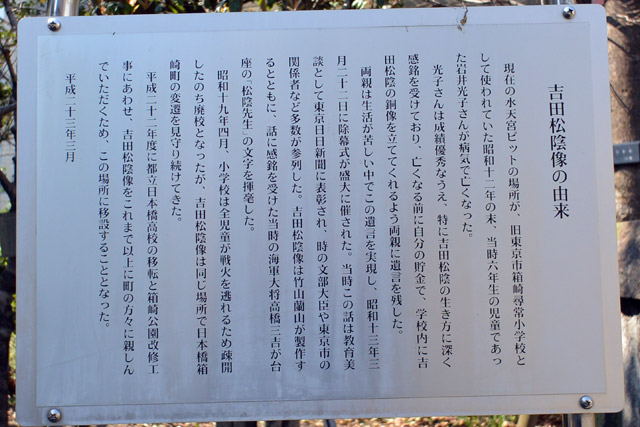 吉田松陰像の由来
現在の水天宮ピットの場所が、旧東京市箱崎尋常小学校と
して使われていた昭和十二年の末、当時六年生の児童であっ
た岩井光子さんが病気で亡くなった。
光子さんは成績優秀なうえ、特に吉田松陰の生き方に深く
感銘を受けており、亡くなる前に自分の貯金で、学校内に吉
田松陰の銅像を立ててくれるよう両親に遺言を残した。
両親は生活が苦しい中でこの遺言を実現し、昭和十三年三
月二十二日に除幕式が盛大に催された。当時この話は教育美
談として東京日日新聞に表彰され、時の文部大臣や東京市の
関係者など多数が参列した。吉田松陰像は竹山蘭山が製作す
るとともに、話に感銘を受けた当時の海軍大将高橋三吉が台
座の「松陰先生」の文字を揮毫した。
昭和十九年四月、小学校は全児童が戦火を逃れるため疎開
したのち廃校となったが、吉田松陰像は同じ場所で日本橋箱
崎町の変遷を見守り続けてきた。
平成二十二年度に都立日本橋高校の移転と箱崎公園改修工
事にあわせ、吉田松陰像をこれまで以上に町の方々に親しん
でいただくため、この場所に移設することとなった。
平成二十三年三月